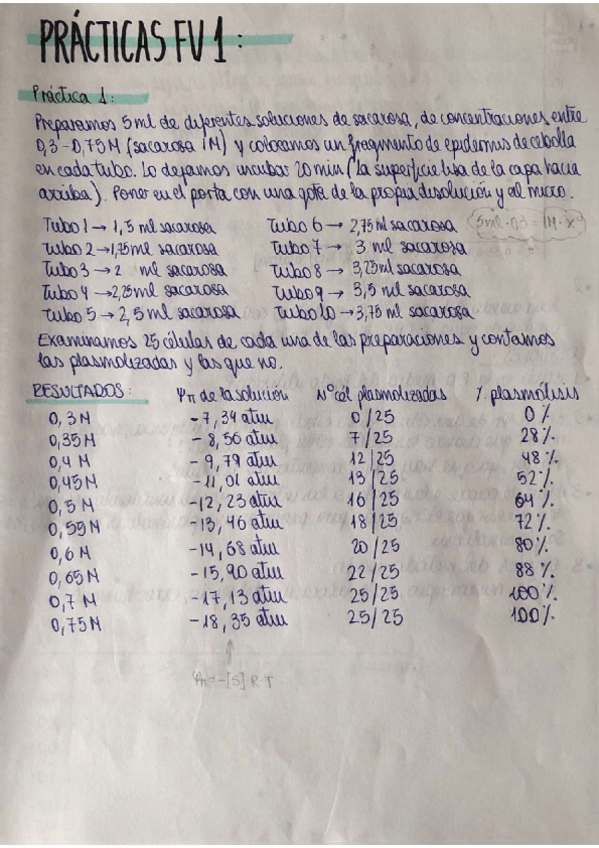 PRÁCTICAS FV 1:
Práctica 1:
Preparamos 5ml de diferentes soluciones de sacarosa, de concentraciones entre
0,3-0,75M (sacarosa 1M) y colocamos un fragmento de epidermis de cebolla
en cada tubo. Lo dejamos incubar 20 min (la superficie lisa de la capa hacia
arriba). Poner en el porta con una gota de la propia disolución y al micro.
Tubo 1 → 1,5 ml sacarosa Tubo 6 → 2,75 ml sacarosa (5ml·0,3 = 1M·x)
Tubo 2 → 1,75ml sacarosa Tubo 7 → 3 ml sacarosa
Tubo 3 → 2 ml sacarosa Tubo 8 → 3,25ml sacarosa
Tubo 4 → 2,25ml sacarosa Tubo 9 → 3,5 ml sacarosa
Tubo 5 → 2,5 ml sacarosa Tubo 10 → 3,75 ml sacarosa
Examinamos 25 células de cada una de las preparaciones y contamos
las plasmolizadas y las que no.
RESULTADOS: Ψπ de la solución Nº cél plasmolizadas % plasmólisis
0,3M -7,34 atm 0/25 0%
0,35M -8,56 atm 7/25 28%
0,4 M -9,79 atm 12/25 48%
0,45M -11,01 atm 13/25 52%
0,5M -12,23 atm 16/25 64%
0,55M -13,46 atm 18/25 72%
0,6 M -14,68 atm 20/25 80%
0,65M -15,90 atm 22/25 88%
0,7 M -17,13 atm 25/25 100%
0,75M -18,35 atm 25/25 100%
↑
Ψπ=-[S]·R·T